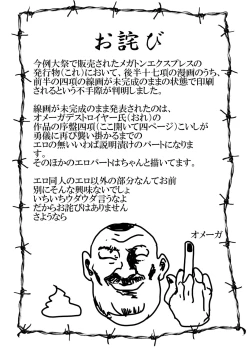 お詫び
今例大祭で販売されたメガトンエクスプレスの
発行物（これ）において、後半十七項の漫画のうち、
前半の四項の線画が未完成のままの状態で印刷
されるという不手際が判明しました。
線画が未完成のまま発表されたのは、
オメーガデストロイヤー氏（おれ）の
作品の序盤四項（ここ開いて四ページ）こいしが
勇儀に再び襲い掛かるまでの
エロの無いいわば説明漬けのパートになりま
す。
そのほかのエロパートはちゃんと描いてます。
エロ同人のエロ以外の部分なんてお前
別にそんな興味ないでしょ
いちいちウダウダ言うなよ
だからお詫びはありません
さようなら
オメーガ